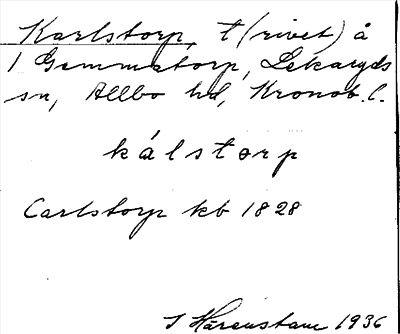 Karlstorp, t(rivet) å
1 Gemmatorp, Lekaryds
sn, Allbo hd, Kronob. l.
kálstorp
Carlstorp kb 1828
I Härenstam 1936